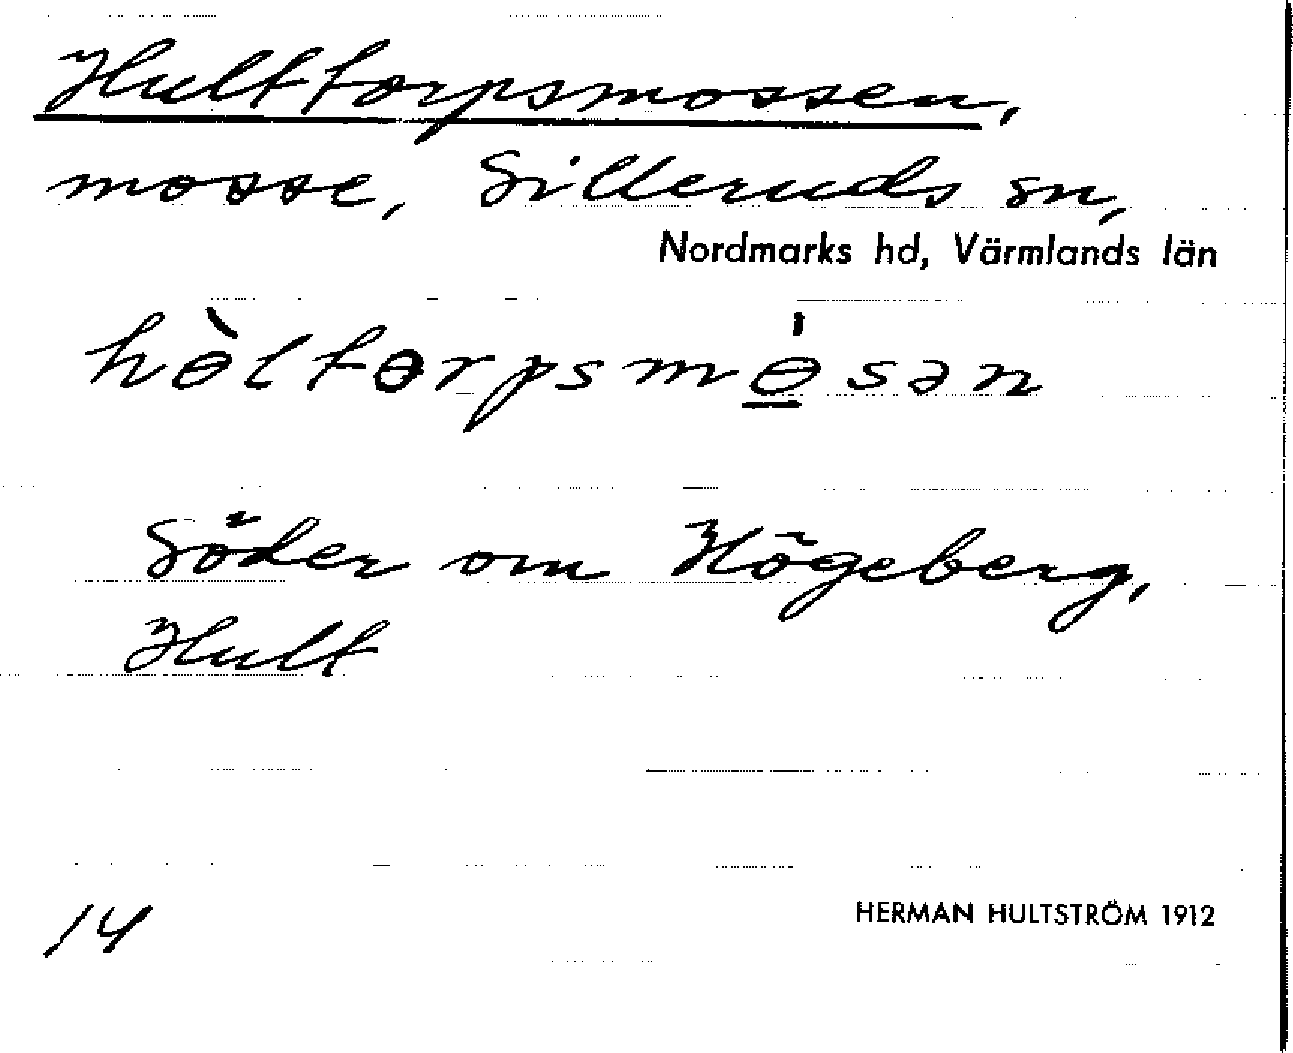 Hulttorpsmossen,
mosse, Silleruds sn,
Nordmarks hd, Värmlands län
hɵ̀ltɵrpsmɵ̲́sən
Söder om Högeberg,
Hult
14
HERMAN HULTSTRÖM 1912